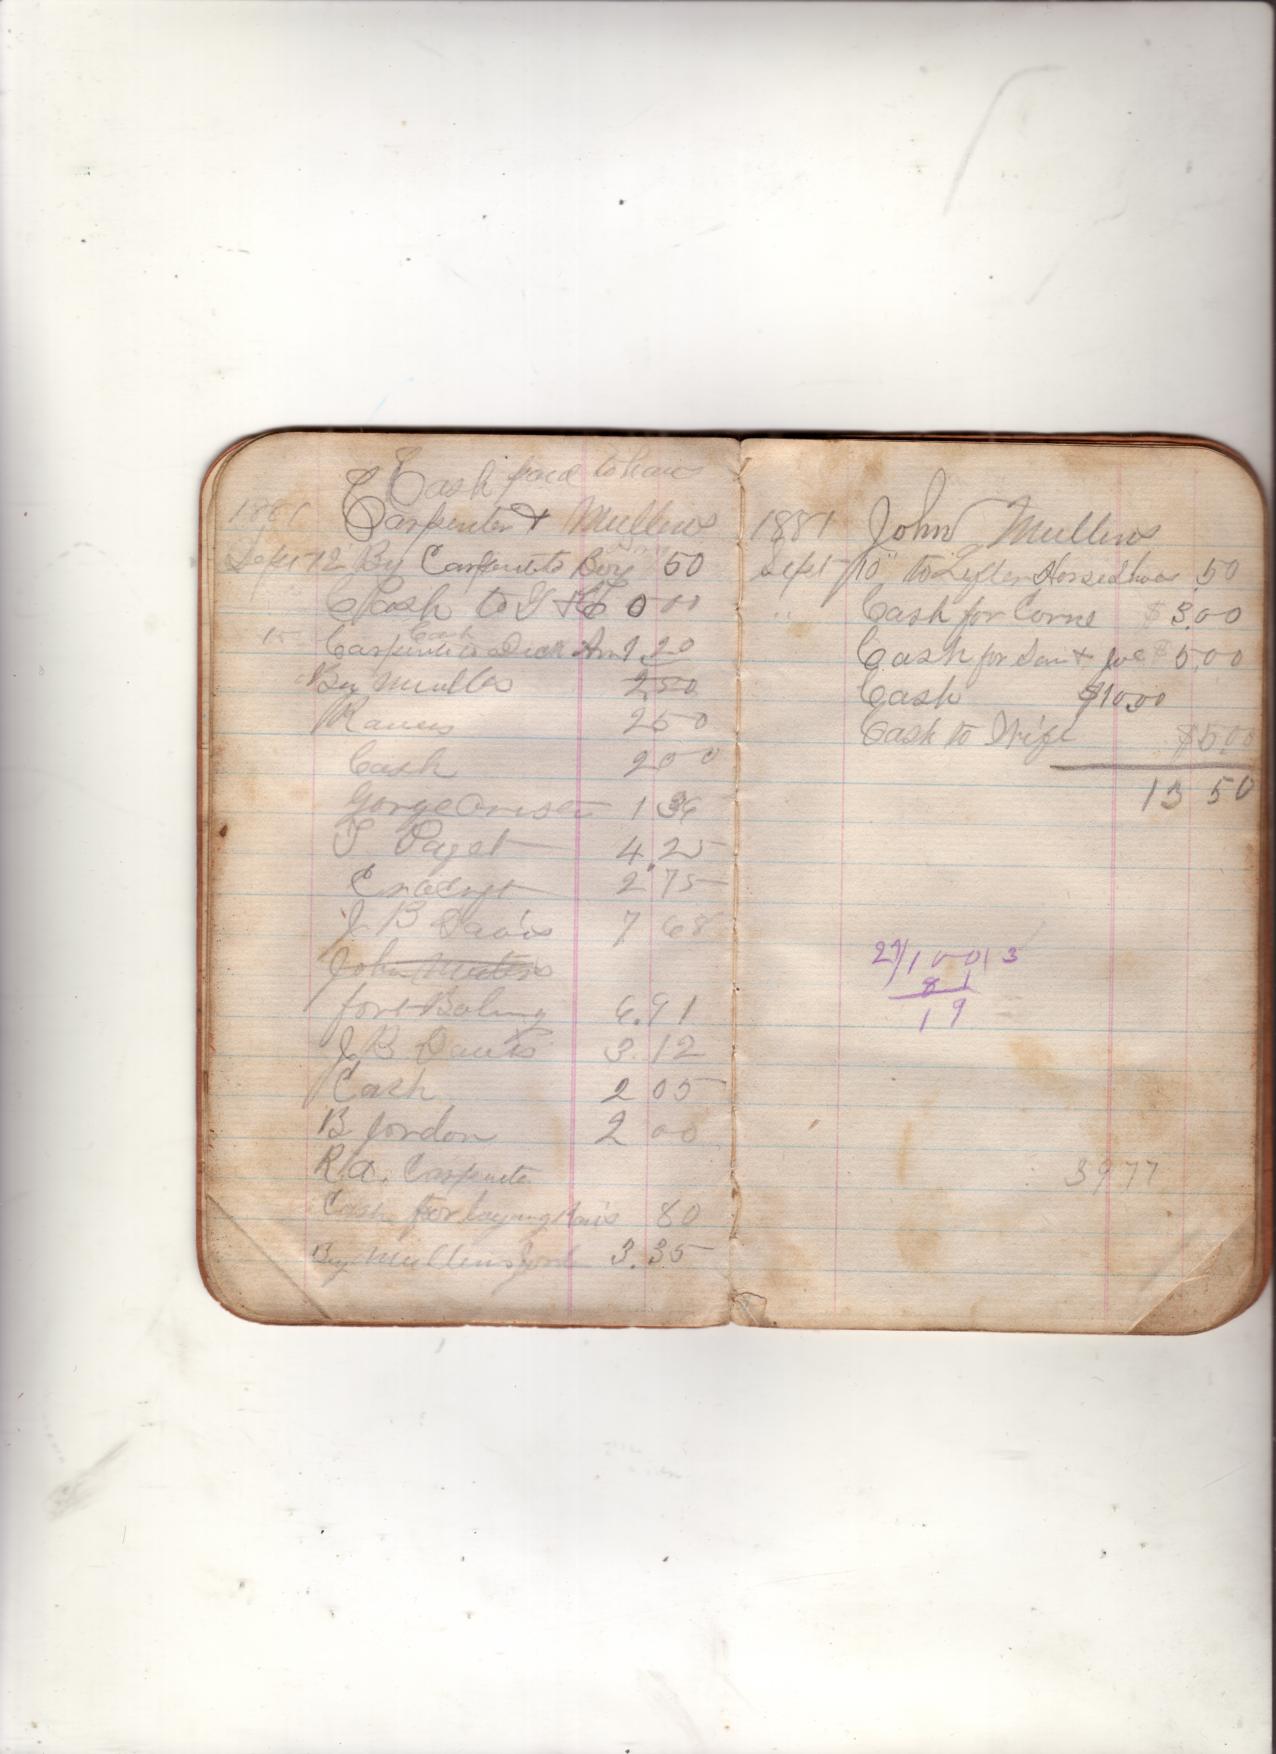 Cash paid to hans
Carpenter & Mullins
Sept 12 By Carpenter to Boy 50
Cash to 0 00
15 Carpenter Cash to Dick 1.20
By Mullins 2.50
2 50
Cash 2 00
George 1 36
Paget 4.25
2.75
J B Davis 7 68
John Mullins
fort Boling 6.91
J B Davis 3.12
Cash 2 05
B Jordon 2 00
R. A. Carpenter
Cash for 80
By Mullins 3.35
1881 John Mullins
Sept 10 to Horse Shoes 50
" Cash for Corne $ 3.00
Cash for Dan & Joe $ 5.00
Cash $10.00
Cash to Wife $5.00
13 50
27/100/3
81
19
3977